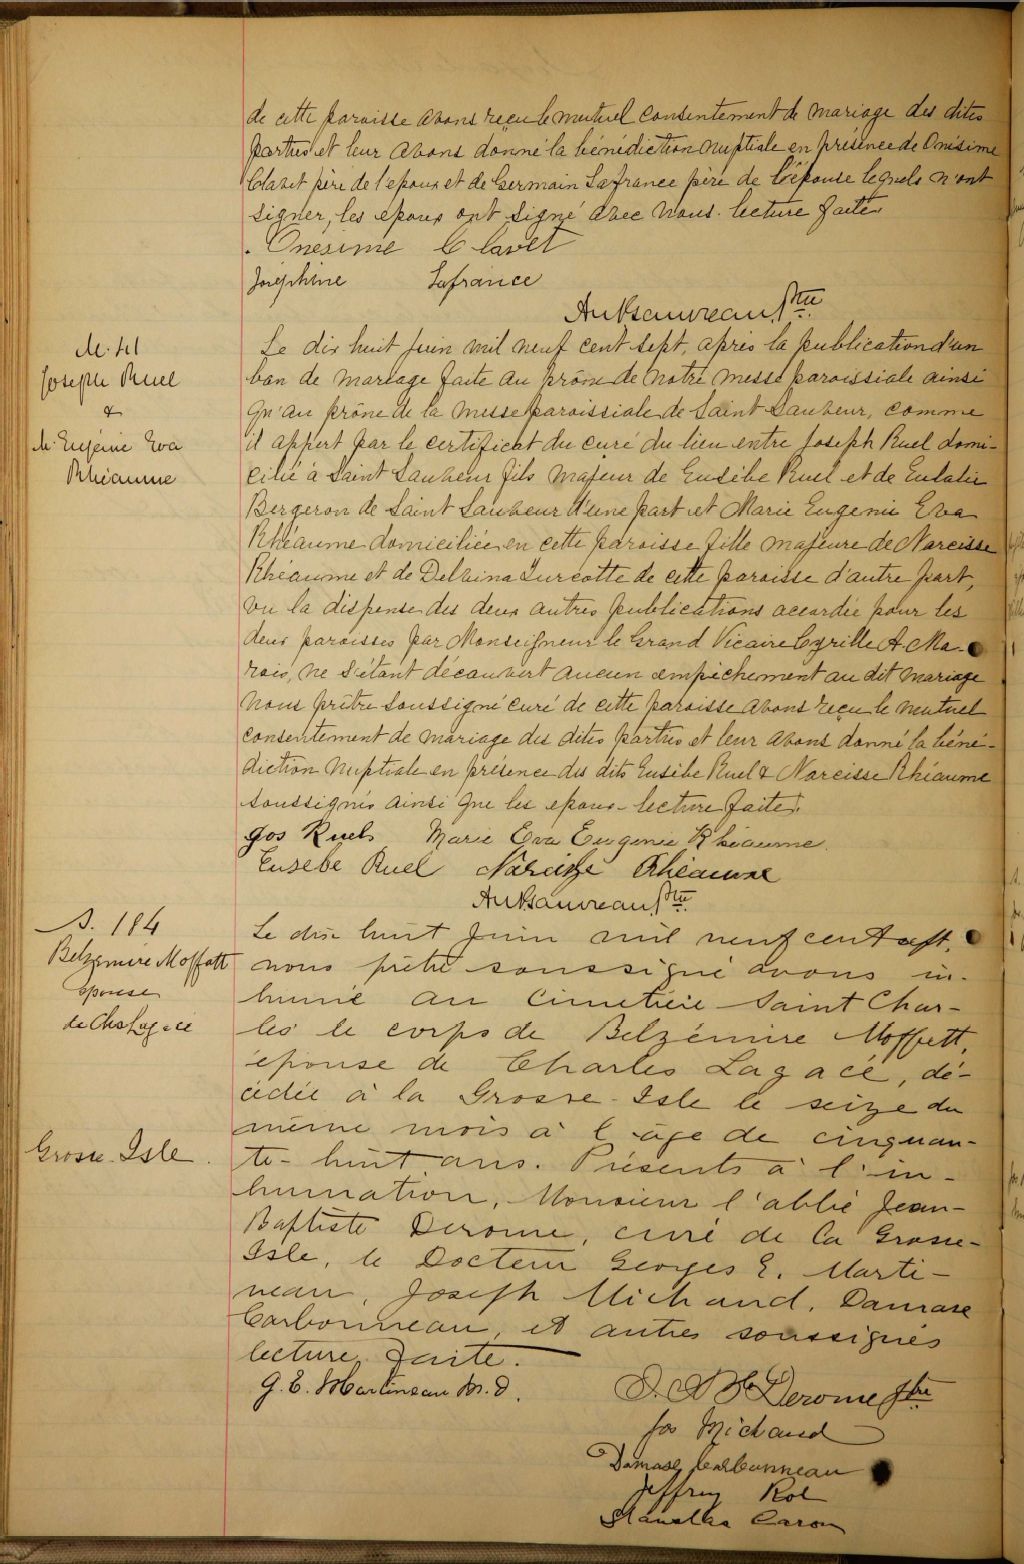 de cette paroisse avons reçu le mutuel consentement de mariage des dites
parties et leur avons donné la bénédiction nuptiale en présence de Onésime
Clavet père de l'epoux et de Germain Lafrance père de l'épouse lequels n'ont
signer, les epoux ont signé avec nous. lecture faite.
Onesime Clavet
Joséphine Lafrance
Ptre
M. 41
Joseph Ruel
&
M. Eugénie Eva
Rhéaume
Le dix huit juin mil neuf cent sept, après la publication d'un
ban de mariage faite au prône de notre messe paroissiale ainsi
qu'au prône de la messe paroissiale de Saint Sauveur, comme
il appert par le certificat du curé du lieu entre Joseph Ruel domi-
cilié à Saint Sauveur fils majeur de Eusèbe Ruel et de Eulalie
Bergeron de Saint Sauveur d'une part et Marie Eugenie Eva
Rhéaume domiciliée en cette paroisse fille majeure de Narcisse
Rhéaume et de Delvina Turcotte de cette paroisse d'autre part,
vu la dispense des deux autres publications accordée pour les
deux paroisses par Monseigneur le Grand Vicaire Cyrille A. Ma-
rois, ne s'étant découvert aucun empêchement au dit mariage
nous prêtre soussigné curé de cette paroisse avons reçu le mutuel
consentement de mariage des dites parties et leur avons donné la béné-
diction nuptiale en présence des dits Eusèbe Ruel & Narcisse Rhéaume
soussignés ainsi que les epoux - lecture faite.
Jos Ruel Marie Eva Eugenie Rhéaume
Eusebe Ruel Narcisse Rhéaume
Ptre
S. 184
Belzémire Moffatt
épouse
de Chs Lagacé
Grosse-Isle
Le dix huit juin mil neuf cent sept,
nous prêtre soussigné avons in-
humé au cimetière Saint Char-
les le corps de Belzémire Moffett,
épouse de Charles Lagacé, dé-
cédée à la Grosse-Isle le seize du
même mois à l'âge de cinquan-
te-huit ans. Présents à l'in-
humation, Monsieur l'abbé Jean-
Baptiste Derome, curé de la Grosse-
Isle, le Docteur Georges E. Marti-
neau, Joseph Michaud, Damase
Carbonneau, et autres soussignés
lecture faite.
G. E. Martineau M.D.
J. A. Bte Derome Ptre
Jos Michaud
Damase Carbonneau
Jeffrey
Stanislas Caron